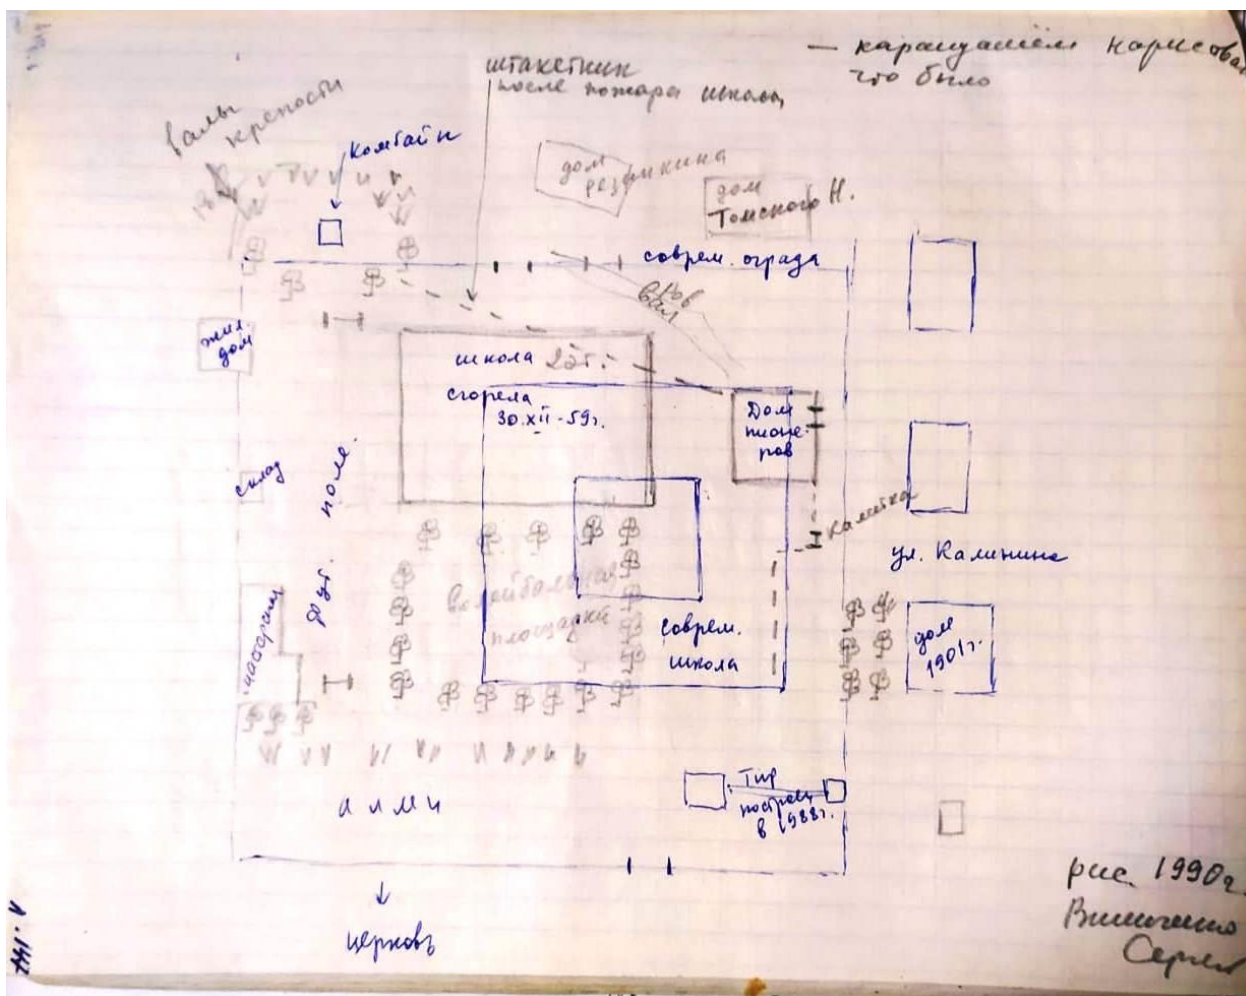 — карандашём нарисовал
что было
штакетник
после пожара школы
валы
крепости
комбайн
дом
резникина
дом
Томского Н.
соврем. ограда
ров
вал
жил.
дом
школа 2эт.
сгорела
30.XII-59г.
Дом
пионе-
ров
склад
фут. поле.
калитка
ул. Калинина
Волейбольная
площадка
мастерская
соврем.
школа
дом
1901г.
Тир
построен
в 1988г.
церковь
рис. 1990г.
Сергей